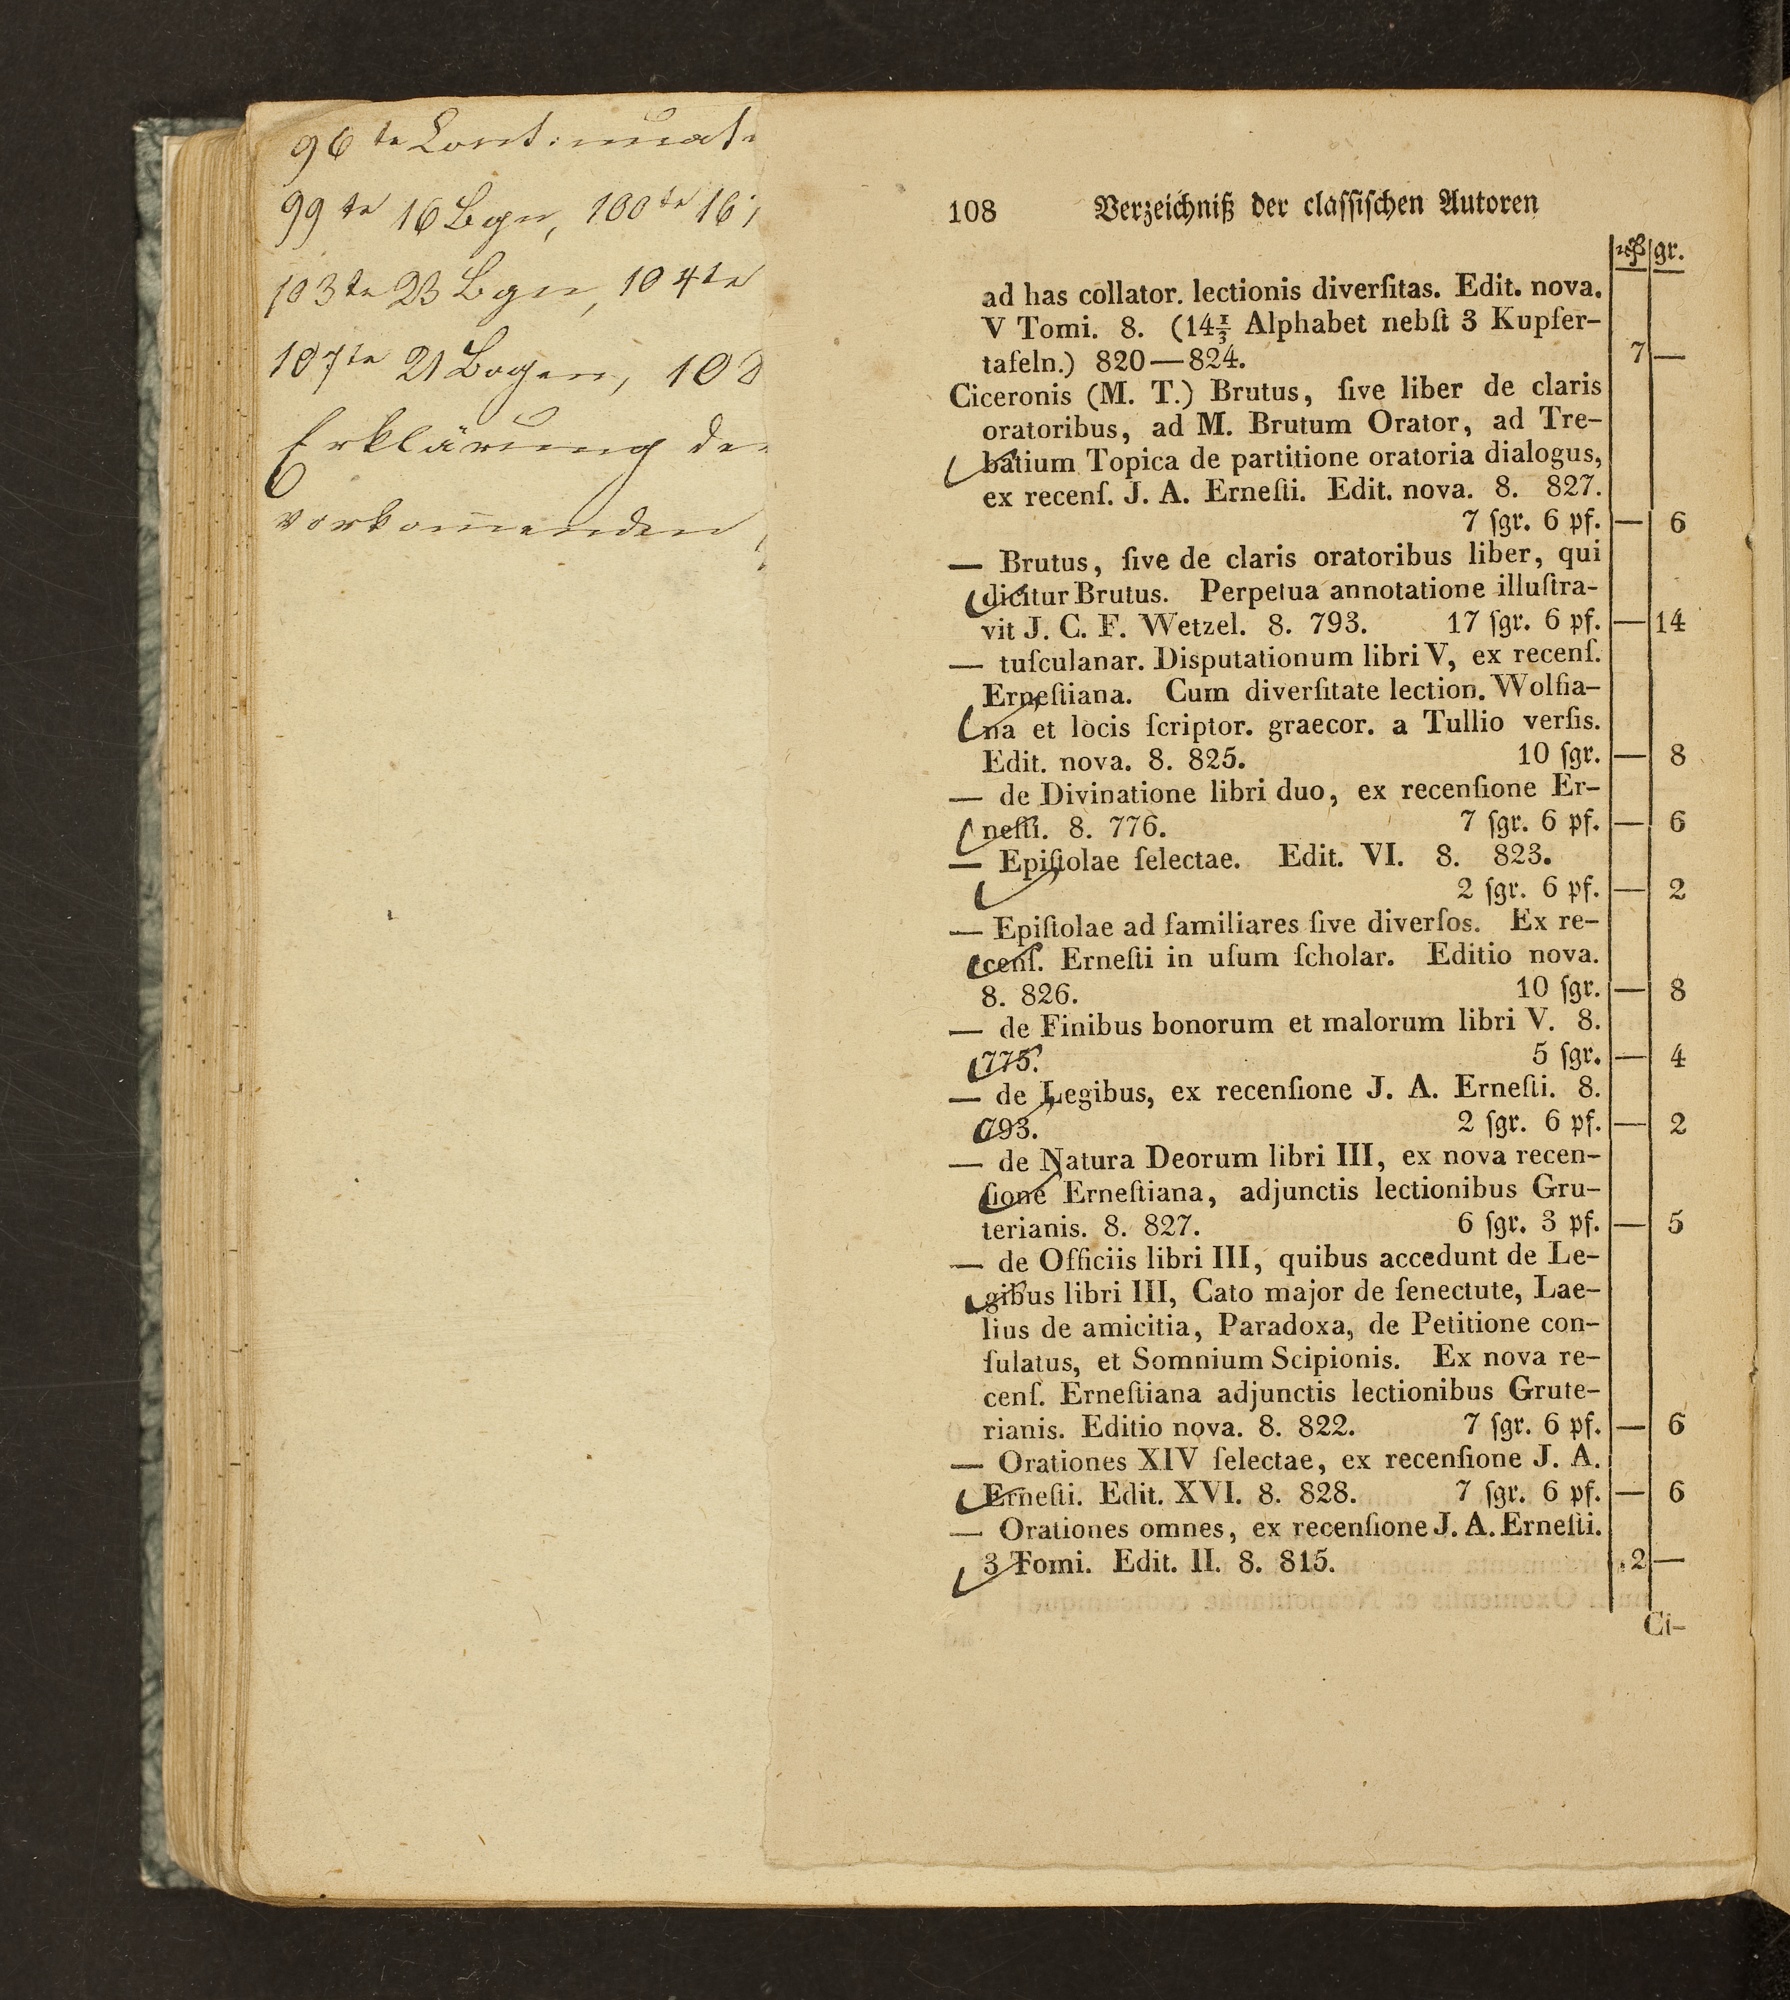 96te Continuat.
99te 16 Bgn, 100te 16
103te 23 Bgn, 104te
107te 21 Bogen, 108
Erklärung de
vorkom̅enden
108 Verzeichniß der classischen Autoren
rthlr gr.
ad has collator. lectionis diverſitas. Edit. nova.
V Tomi. 8. (14⅓ Alphabet nebſt 3 Kupfer-
tafeln.) 820—824. 7 —
Ciceronis (M. T.) Brutus, ſive liber de claris
oratoribus, ad M. Brutum Orator, ad Tre-
batium Topica de partitione oratoria dialogus,
ex recenſ. J. A. Erneſti. Edit. nova. 8. 827.
7 ſgr. 6 pf. — 6
— Brutus, ſive de claris oratoribus liber, qui
dicitur Brutus. Perpetua annotatione illuſtra-
vit J. C. F. Wetzel. 8. 793. 17 ſgr. 6 pf. — 14
— tuſculanar. Disputationum libri V, ex recenſ.
Erneſtiana. Cum diverſitate lection. Wolfia-
na et locis ſcriptor. graecor. a Tullio verſis.
Edit. nova. 8. 825. 10 ſgr. — 8
— de Divinatione libri duo, ex recenſione Er-
neſti. 8. 776. 7 ſgr. 6 pf. — 6
— Epiſtolae ſelectae. Edit. VI. 8. 823.
2 ſgr. 6 pf. — 2
— Epiſtolae ad familiares ſive diverſos. Ex re-
cenſ. Erneſti in uſum ſcholar. Editio nova.
8. 826. 10 ſgr. — 8
— de Finibus bonorum et malorum libri V. 8.
775. 5 ſgr. — 4
— de Legibus, ex recenſione J. A. Erneſti. 8.
793. 2 ſgr. 6 pf. — 2
— de Natura Deorum libri III, ex nova recen-
ſione Erneſtiana, adjunctis lectionibus Gru-
terianis. 8. 827. 6 ſgr. 3 pf. — 5
— de Officiis libri III, quibus accedunt de Le-
gibus libri III, Cato major de ſenectute, Lae-
lius de amicitia, Paradoxa, de Petitione con-
ſulatus, et Somnium Scipionis. Ex nova re-
cenſ. Erneſtiana adjunctis lectionibus Grute-
rianis. Editio nova. 8. 822. 7 ſgr. 6 pf. — 6
— Orationes XIV ſelectae, ex recenſione J. A.
Erneſti. Edit. XVI. 8. 828. 7 ſgr. 6 pf. — 6
— Orationes omnes, ex recenſione J. A. Erneſti.
3 Tomi. Edit. II. 8. 815. 2 —
Ci-